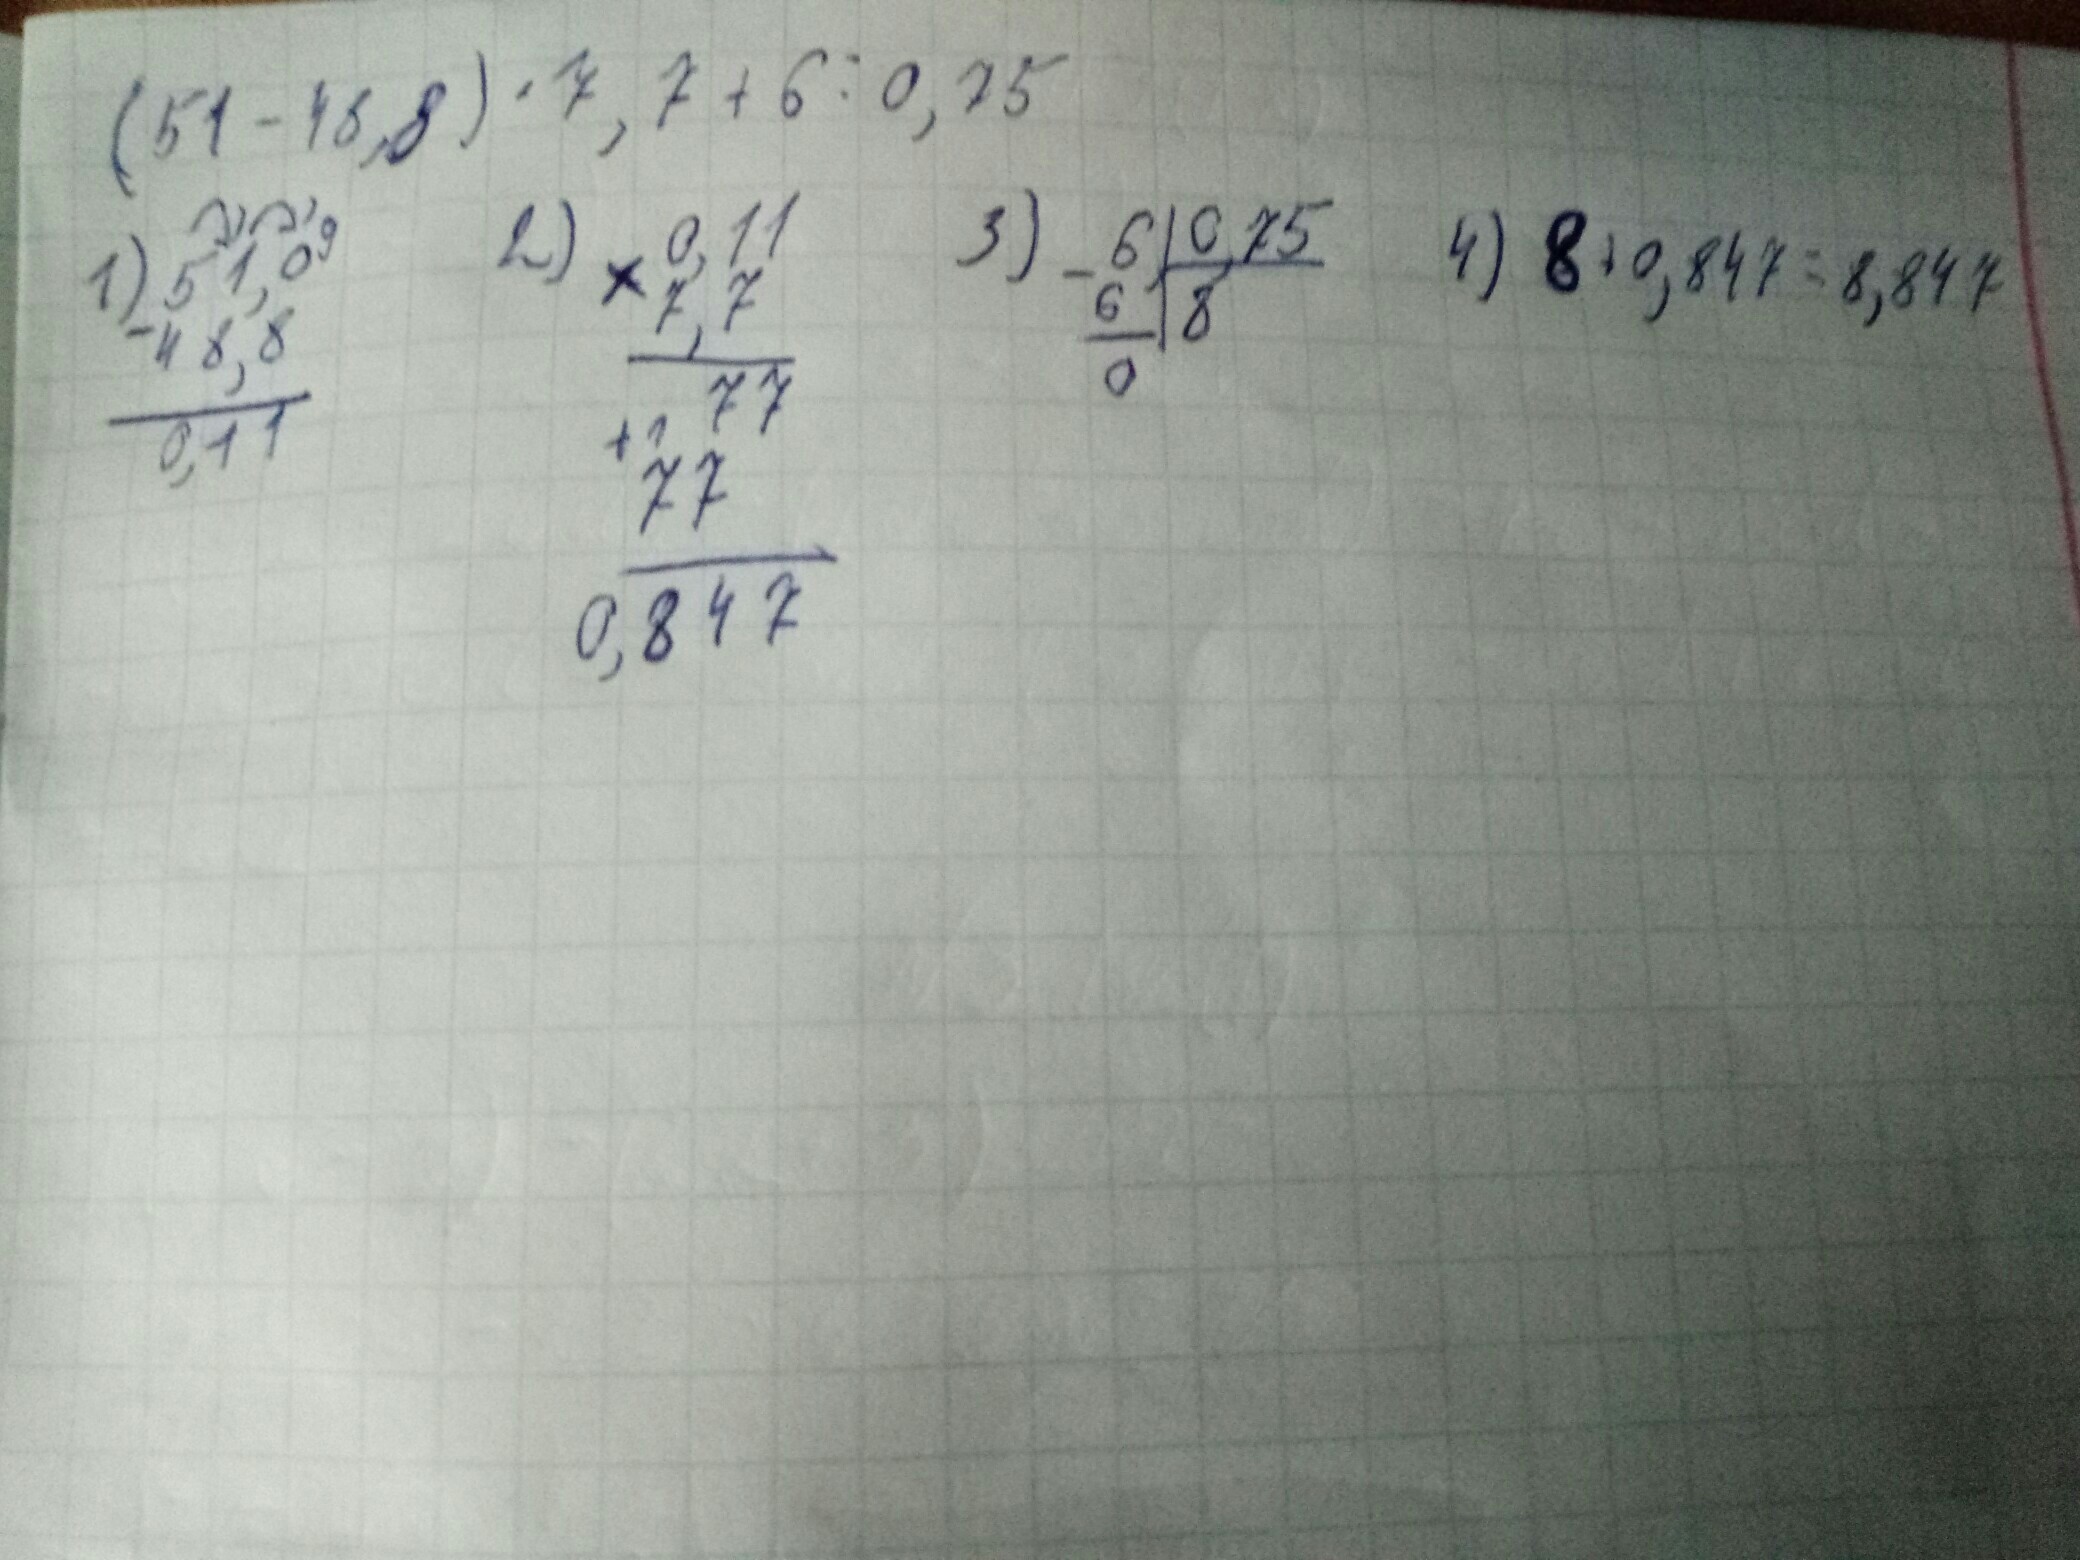 (51-48,8)·7,7+6:0,75
1) 51,09
-48,8
0,11
2) 0,11
× 7,7
77
+ 77
0,847
3) 6 | 0,75
- 6 | 8
0
4) 8+0,847=8,847